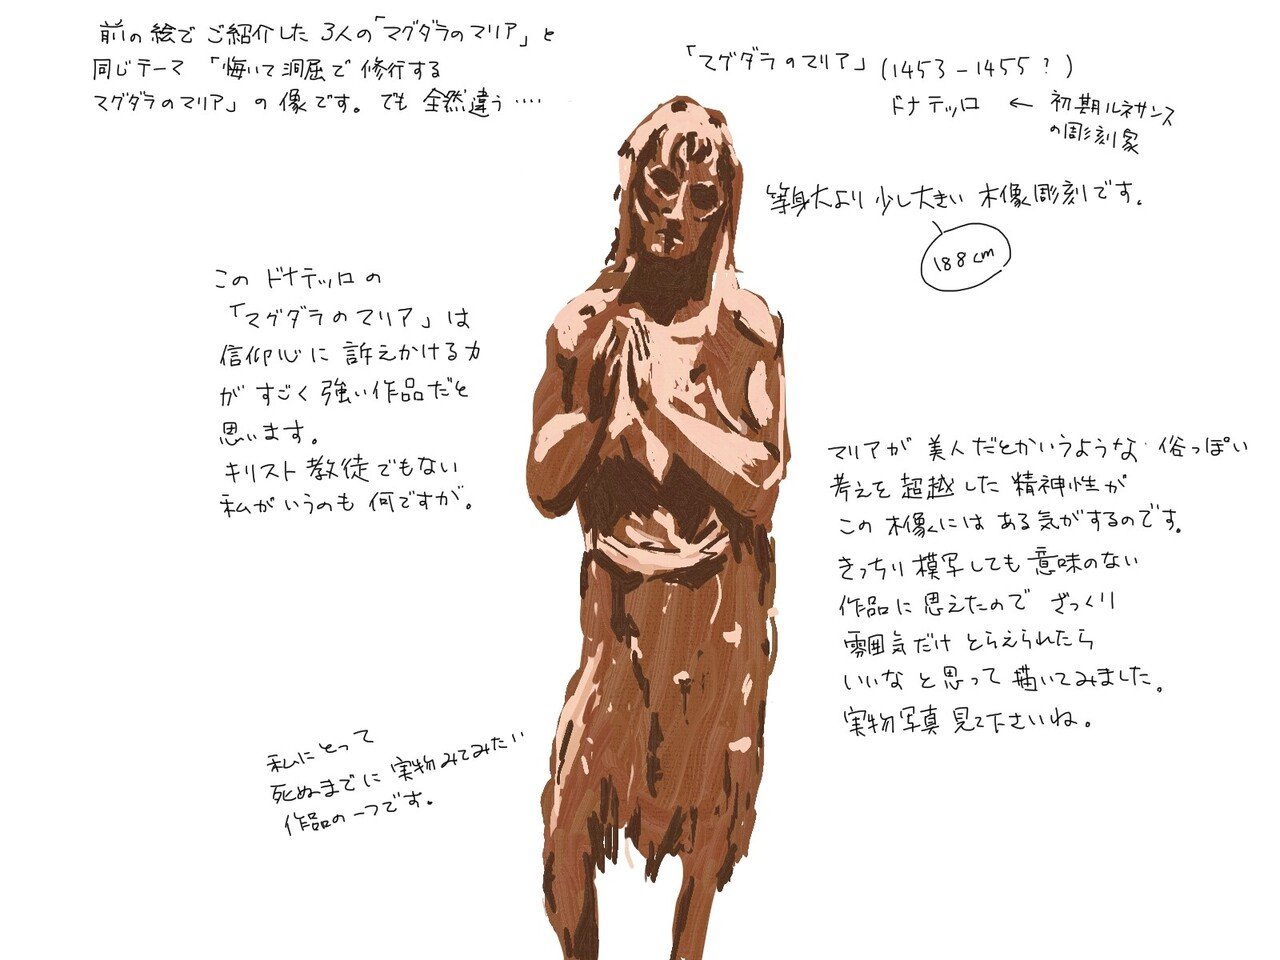 前の絵でご紹介した3人の「マグダラのマリア」と
同じテーマ 「悔いて洞屈で修行する
マグダラのマリア」の像です。でも全然違う‥‥
「マグダラのマリア」(1453-1455?)
ドナテッロ ← 初期ルネサンス
の彫刻家
等身大より少し大きい木像彫刻です。
188cm
この ドナテッロの
「マグダラのマリア」は
信仰心に訴えかける力
がすごく強い作品だと
思います。
キリスト教徒でもない
私がいうのも何ですが。
マリアが美人だとかいうような俗っぽい
考えを超越した精神性が
この木像にはある気がするのです。
きっちり模写しても意味のない
作品に思えたのでざっくり
雰囲気だけとらえられたら
いいなと思って描いてみました。
実物写真見て下さいね。
私にとって
死ぬまでに実物みてみたい
作品の一つです。